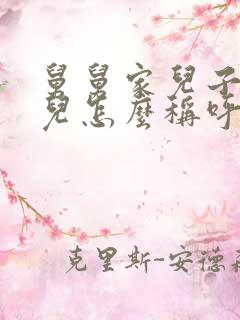 舅舅家兒子
兒怎麼稱呼
克里斯-安德森